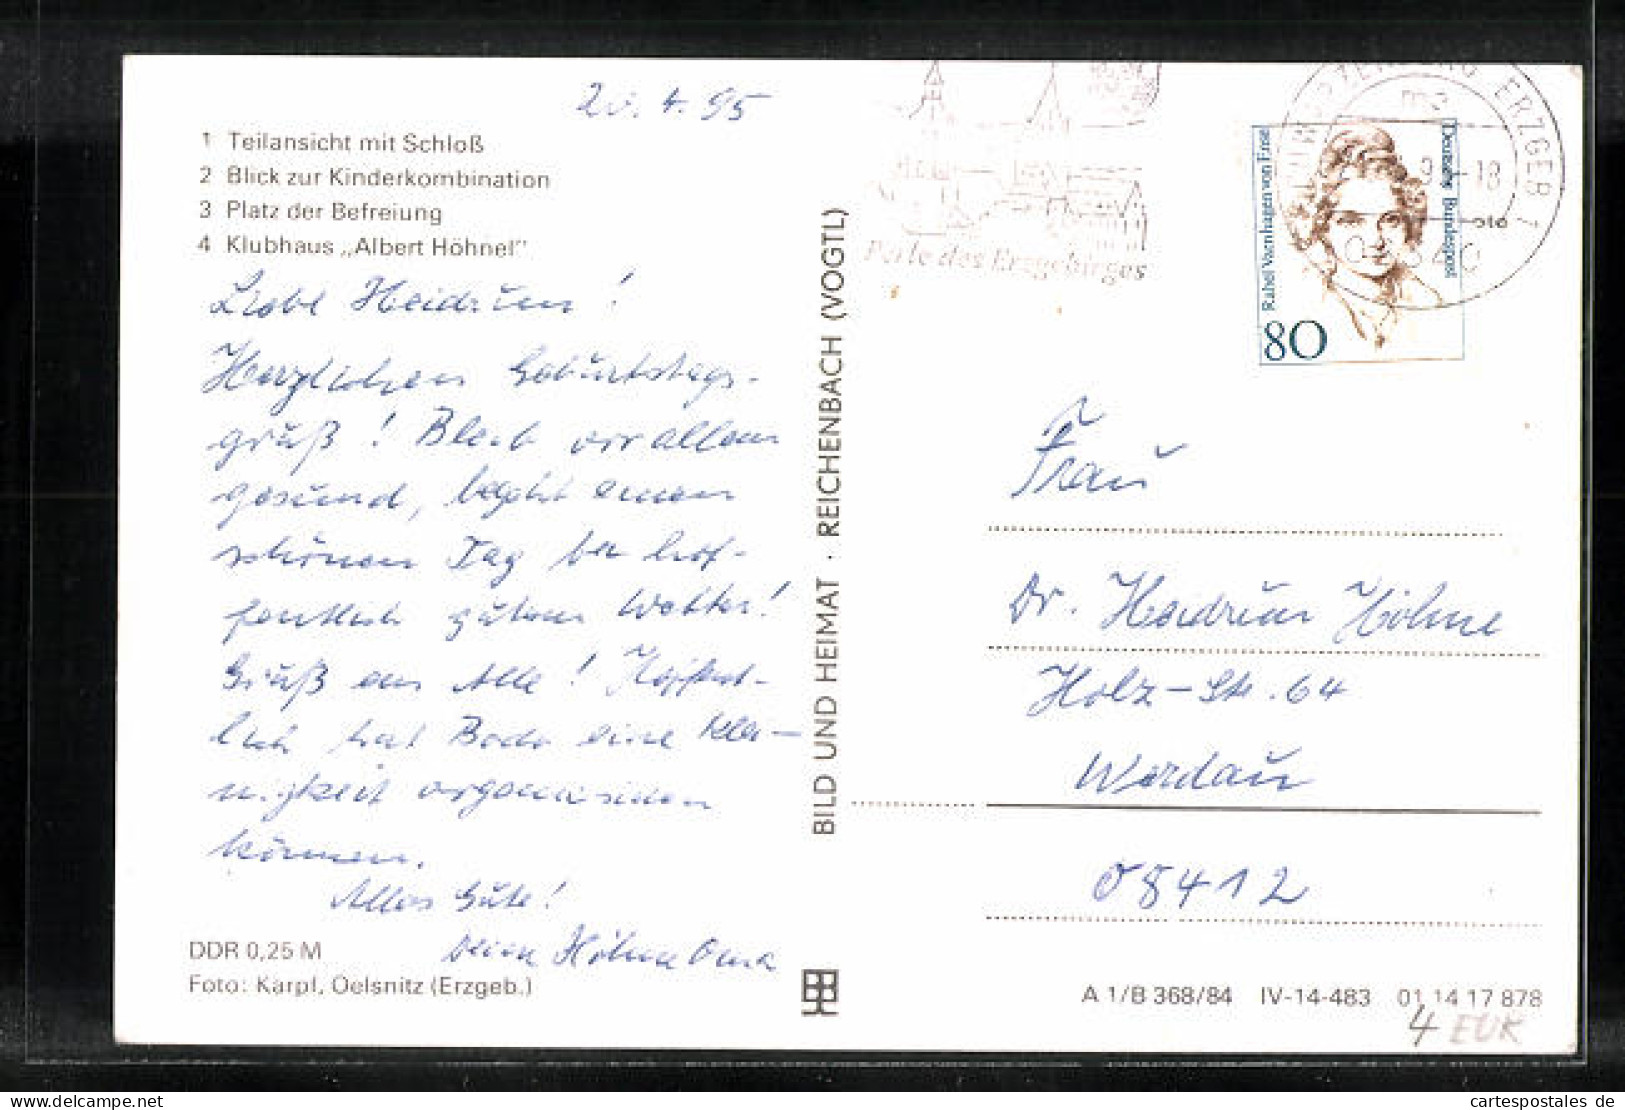 20.4.95
1 Teilansicht mit Schloß
2 Blick zur Kinderkombination
3 Platz der Befreiung
4 Klubhaus „Albert Höhnel"
Liebe Heidrun!
Herzlichen Geburtstags-
gruß! Bleib vor allem
gesund, begeht einen
schönen Tag bei hof-
fentlich gutem Wetter!
Gruß an Alle! Hoffent-
lich hat Bodo eine Klei-
nigkeit
können.
Alles Gute!
Deine Höhne Oma
DDR 0,25 M
Foto: Karpf, Oelsnitz (Erzgeb.)
BILD UND HEIMAT · REICHENBACH (VOGTL)
Perle des Erzgebirges
ERZGEB 1
Rahel Varnhagen von Ense
Deutsche Bundespost
80
Frau
Dr. Heidrun Höhne
Holz-Str. 64
Werdau
08412
A 1/B 368/84 IV-14-483 01 14 17 878
4 EUR
cartespostales.de